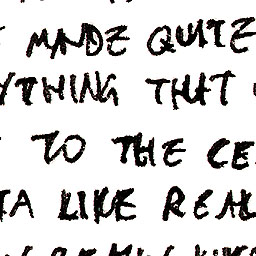 MADE QUITE
YTHING THAT
TO THE CE
TA LIKE REAL